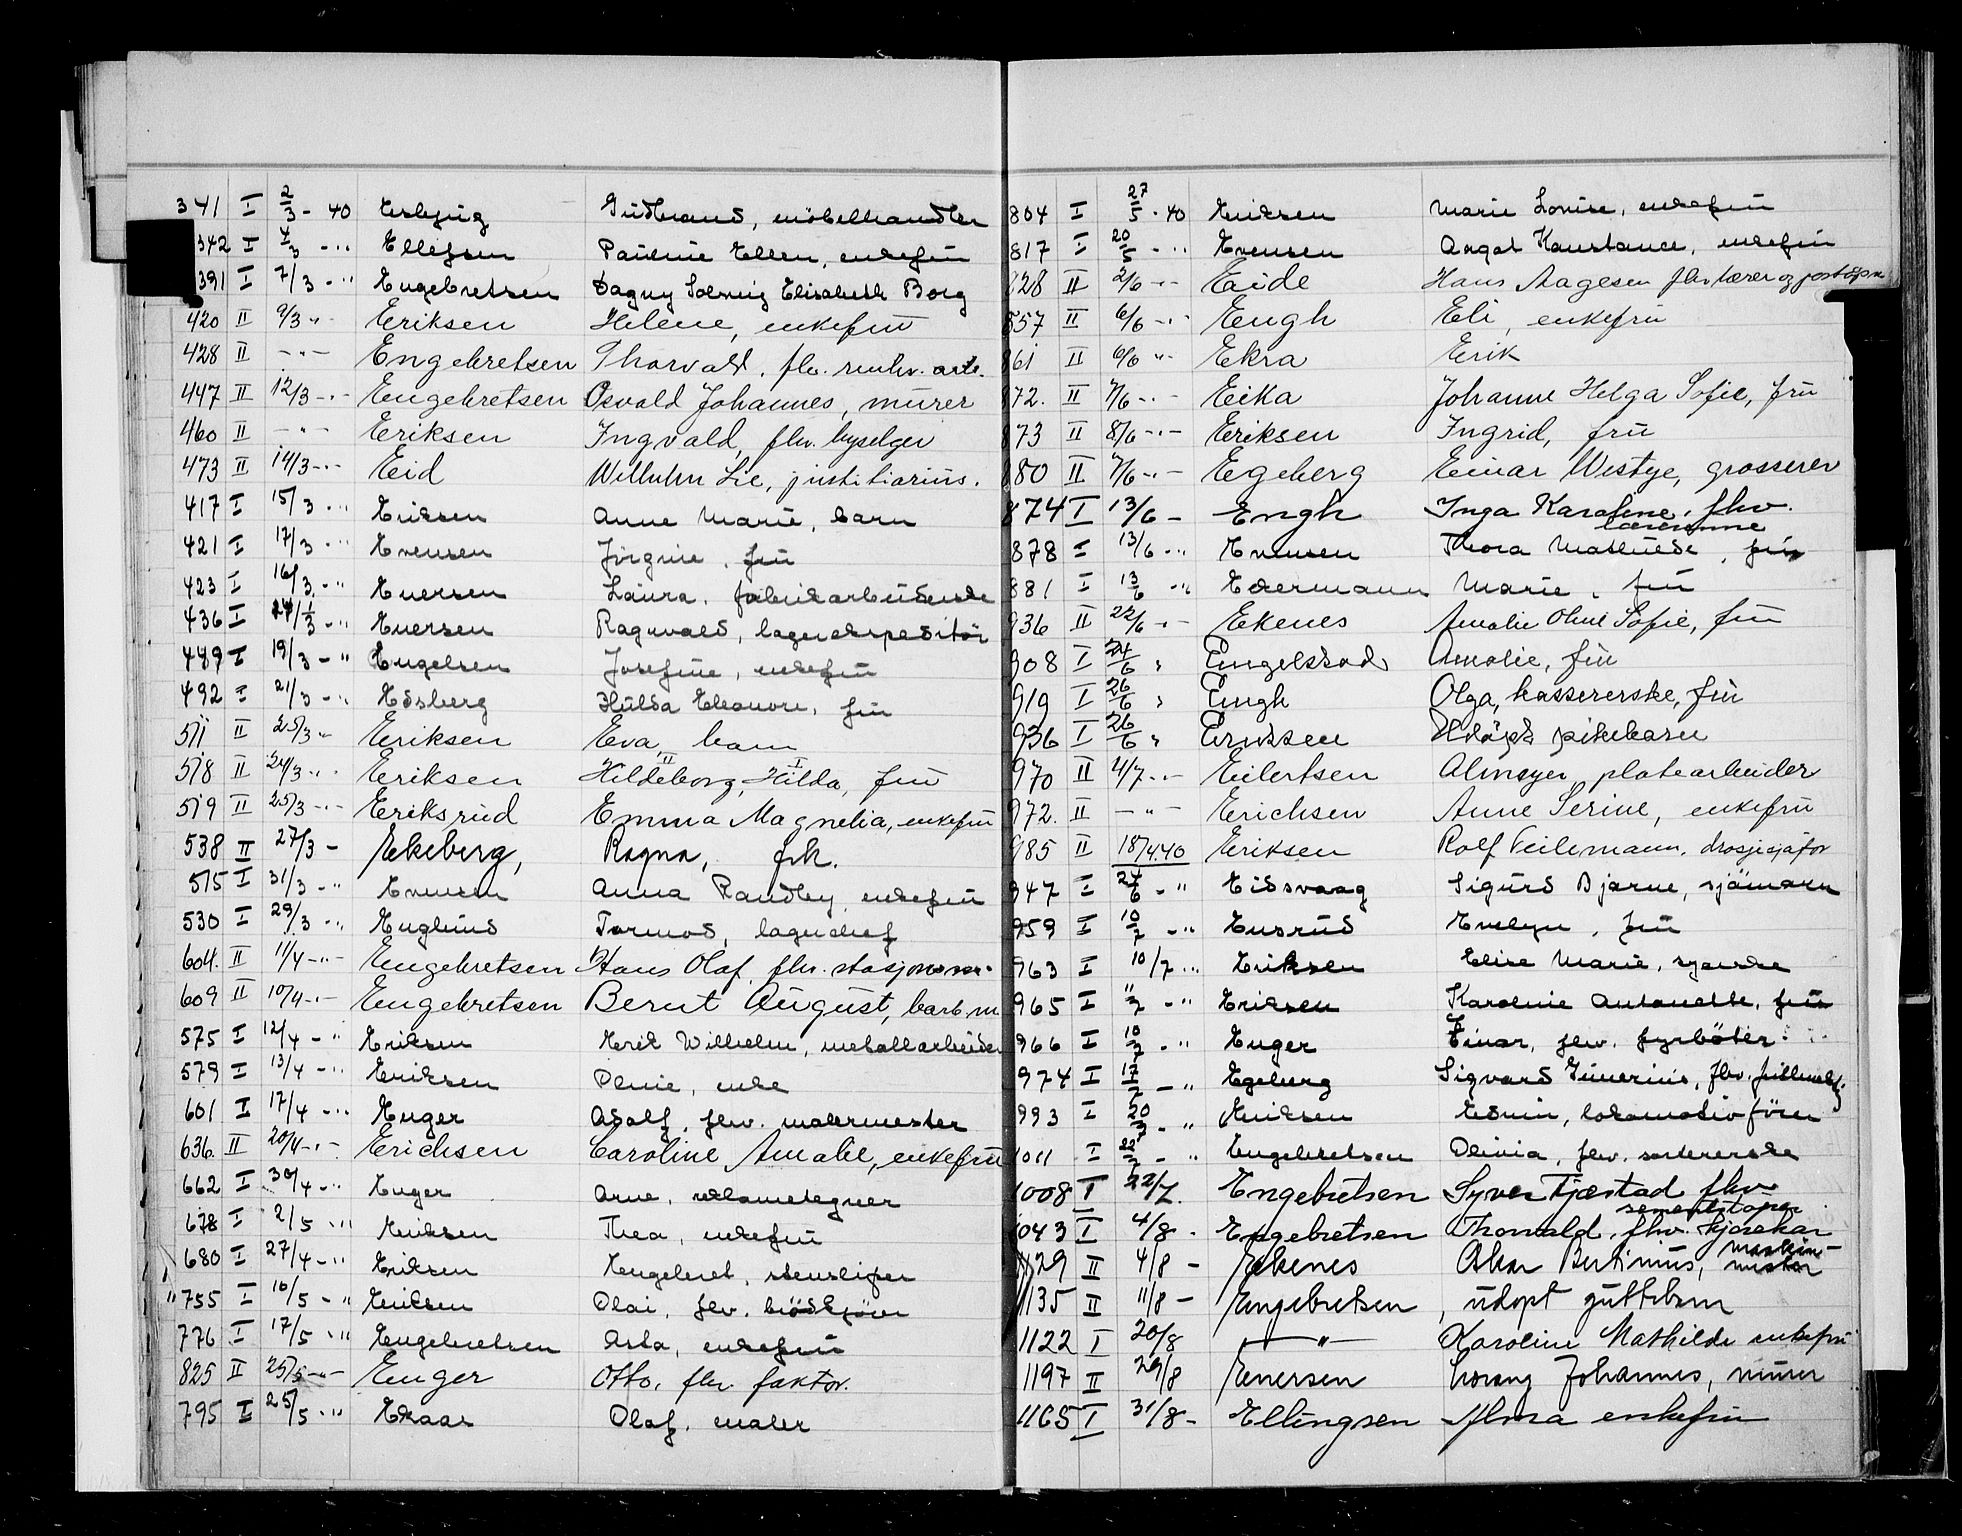 341 I 2/3 - 40 Gudbrand, møbelhandler
342 I 4/3 - " Ellefsen Pauline Ellen, enkefru
391 I 7/3 - " Engebretsen Dagny Solveig Elisabeth Borg
420 II 9/3 " Eriksen Helene, enkefru
428 II - " - Engebretsen Thorvald, fhv. renhv. arb.
447 II 12/3 - " - Engebretsen Osvald Johannes, murer
460 II - " - Eriksen Ingvald, fhv. lysselger
473 II 14/3 - " - Eid Wilhelm Lie, justitiarius.
417 I 15/3 - " Eriksen Anne Marie, barn
421 I 17/3 - " Evensen Jørgine, fru
423 I 16/3 - " Evensen Laura, fabrikarbeiderske
436 I 1/3 - " Evensen Ragnvald, lagerekspeditør
489 I 19/3 - " Engelsen Josefine, enkefru
492 I 21/3 - " Edsberg Hulda Eleonore, fru
511 II 25/3 " Eriksen Eva, barn
518 II 24/3 - " - Eriksen Hildeborg, II Hilda, I fru
519 II 25/3 - " - Eriksrud Emma Magnelia, enkefru
538 II 27/3 - Ekeberg, Ragna, frk.
515 I 31/3 - " Evensen Anna Randby, enkefru
530 I 29/3 - " Englund Tormod, lagerchef
604. II 11/4 - " - Engebretsen Hans Olaf, fhv. stasjons
609 II 10/4 - " - Engebretsen Bernt August, barb. m
575 I 12/4 - " Eriksen Erik Wilhelm, metallarbeider
579 I 13/4 - " Eriksen Oline, enke
601 I 17/4 - " Enger Adolf, fhv. malermester
636. II 20/4 - " - Erichsen Caroline Amalie, enkefru
662 I 30/4 - " Enger Arne, reklametegner
678 I 2/5 - " Eriksen Thea, enkefru
680 I 27/4 - " Eriksen Engebret, stensliper
" 755 I 10/5 - " Eriksen Olai, fhv. brødkjører
776 I 17/5 - " Engebretsen Asta, enkefru
825 II 25/5 - " - Enger Otto, fhv faktor.
795 I 25/5 - " Ekaas Olaf, maler
804 I 27/5 - 40 Eriksen Marie Lovise, enkefru
817 I 20/5 - " Evensen Aagot Konstance, enkefru
828 II 2/6 - " - Eide Hans Aagesen fhv lærer og poståpn
857 II 6/6 - " - Engh Eli, enkefru
861 II 6/6 " - Ekra Erik
872. II 7/6 - " - Eika Johanne Helga Sofie, fru
873 II 8/6 - " - Eriksen Ingrid, fru
880 II 7/6 - " - Egeberg Einar Westye, grosserer
874 I 13/6 - Engh Inga Karoline, fhv.
lærerinne
878 I 13/6 - " Evensen Thora Mathilde, fru
881 I 13/6 - " Eckermann Marie, fru
936 II 22/6 - " - Ekenes Amalie Oline Sofie, fru
908 I 24/6 " Engelstad Amalie, fru
919 I 26/6 " Engh Olga, kassererske, fru
936 I 26/6 " Eriksen Udøpt pikebarn
970 II 4/7 - " - Eilertsen platearbeider
972. II - " - Erichsen Anne Serine, enkefru
985 II 18/4.40 Eriksen Rolf Veilemann, drosjesjafør
947 I 27/6 - " Eidsvaag Sigurd Bjarne, sjømann
959 I 10/7 - " Ensrud Evelyn, fru
963 I 10/7 - " Eriksen Elise Marie, syerske
965 I 11/7 - " Eriksen Karoline Antonette, fru
966 I 10/7 - " Enger Einar, fhv. fyrbøter
974 I 17/7 - " Egeberg Sigvard fhv.
993 I 20/7 - " Eriksen Edvin, lokomotivfører
1011 I 22/7 - " Engebretsen Olivia, fhv. sortererske
1008 I 22/7. Engebretsen Syver Tjæstad fhv
sementstøper
1043 I 4/8 - Engebretsen Thorvald, fhv. kjørekar
1129 II 4/8 - Ekenes Oskar Bertinius, maskin-
mester
1135 II 11/8 - Engebretsen, udøpt guttebarn
1122 I 20/8 - " - Karoline Mathilde enkefru
1197 II 29/8 Enersen Lorang Johannes, murer
1165 I 31/8 - Ellingsen Alma enkefru